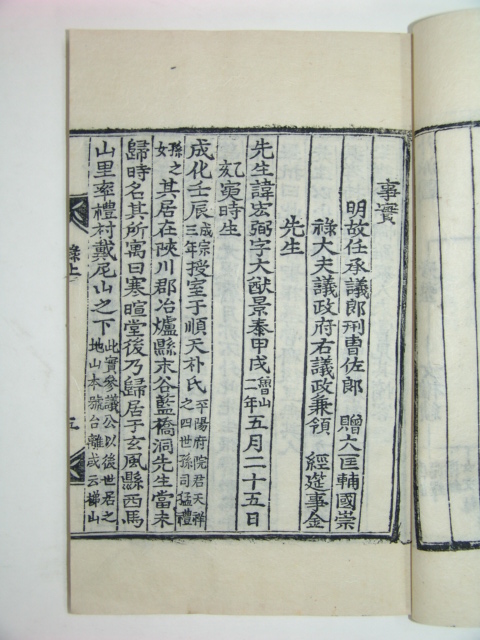 事實
明故任承議郎刑曹佐郎 贈大匡輔國崇
祿大夫議政府右議政兼領 經筵事金
先生
先生諱宏弼字大猷景泰甲戌魯山二年五月二十五日
辰時生
成化壬辰成宗三年授室于順天朴氏平陽府院君天祥之四世孫司猛禮
孫之女其居在陜川郡冶爐縣末谷藍橋洞先生當未
歸時名其所寓曰寒暄堂後乃歸居于玄風縣西馬
山里率禮村戴尼山之下此實參議公以後世居之地山本號台離或云梯山